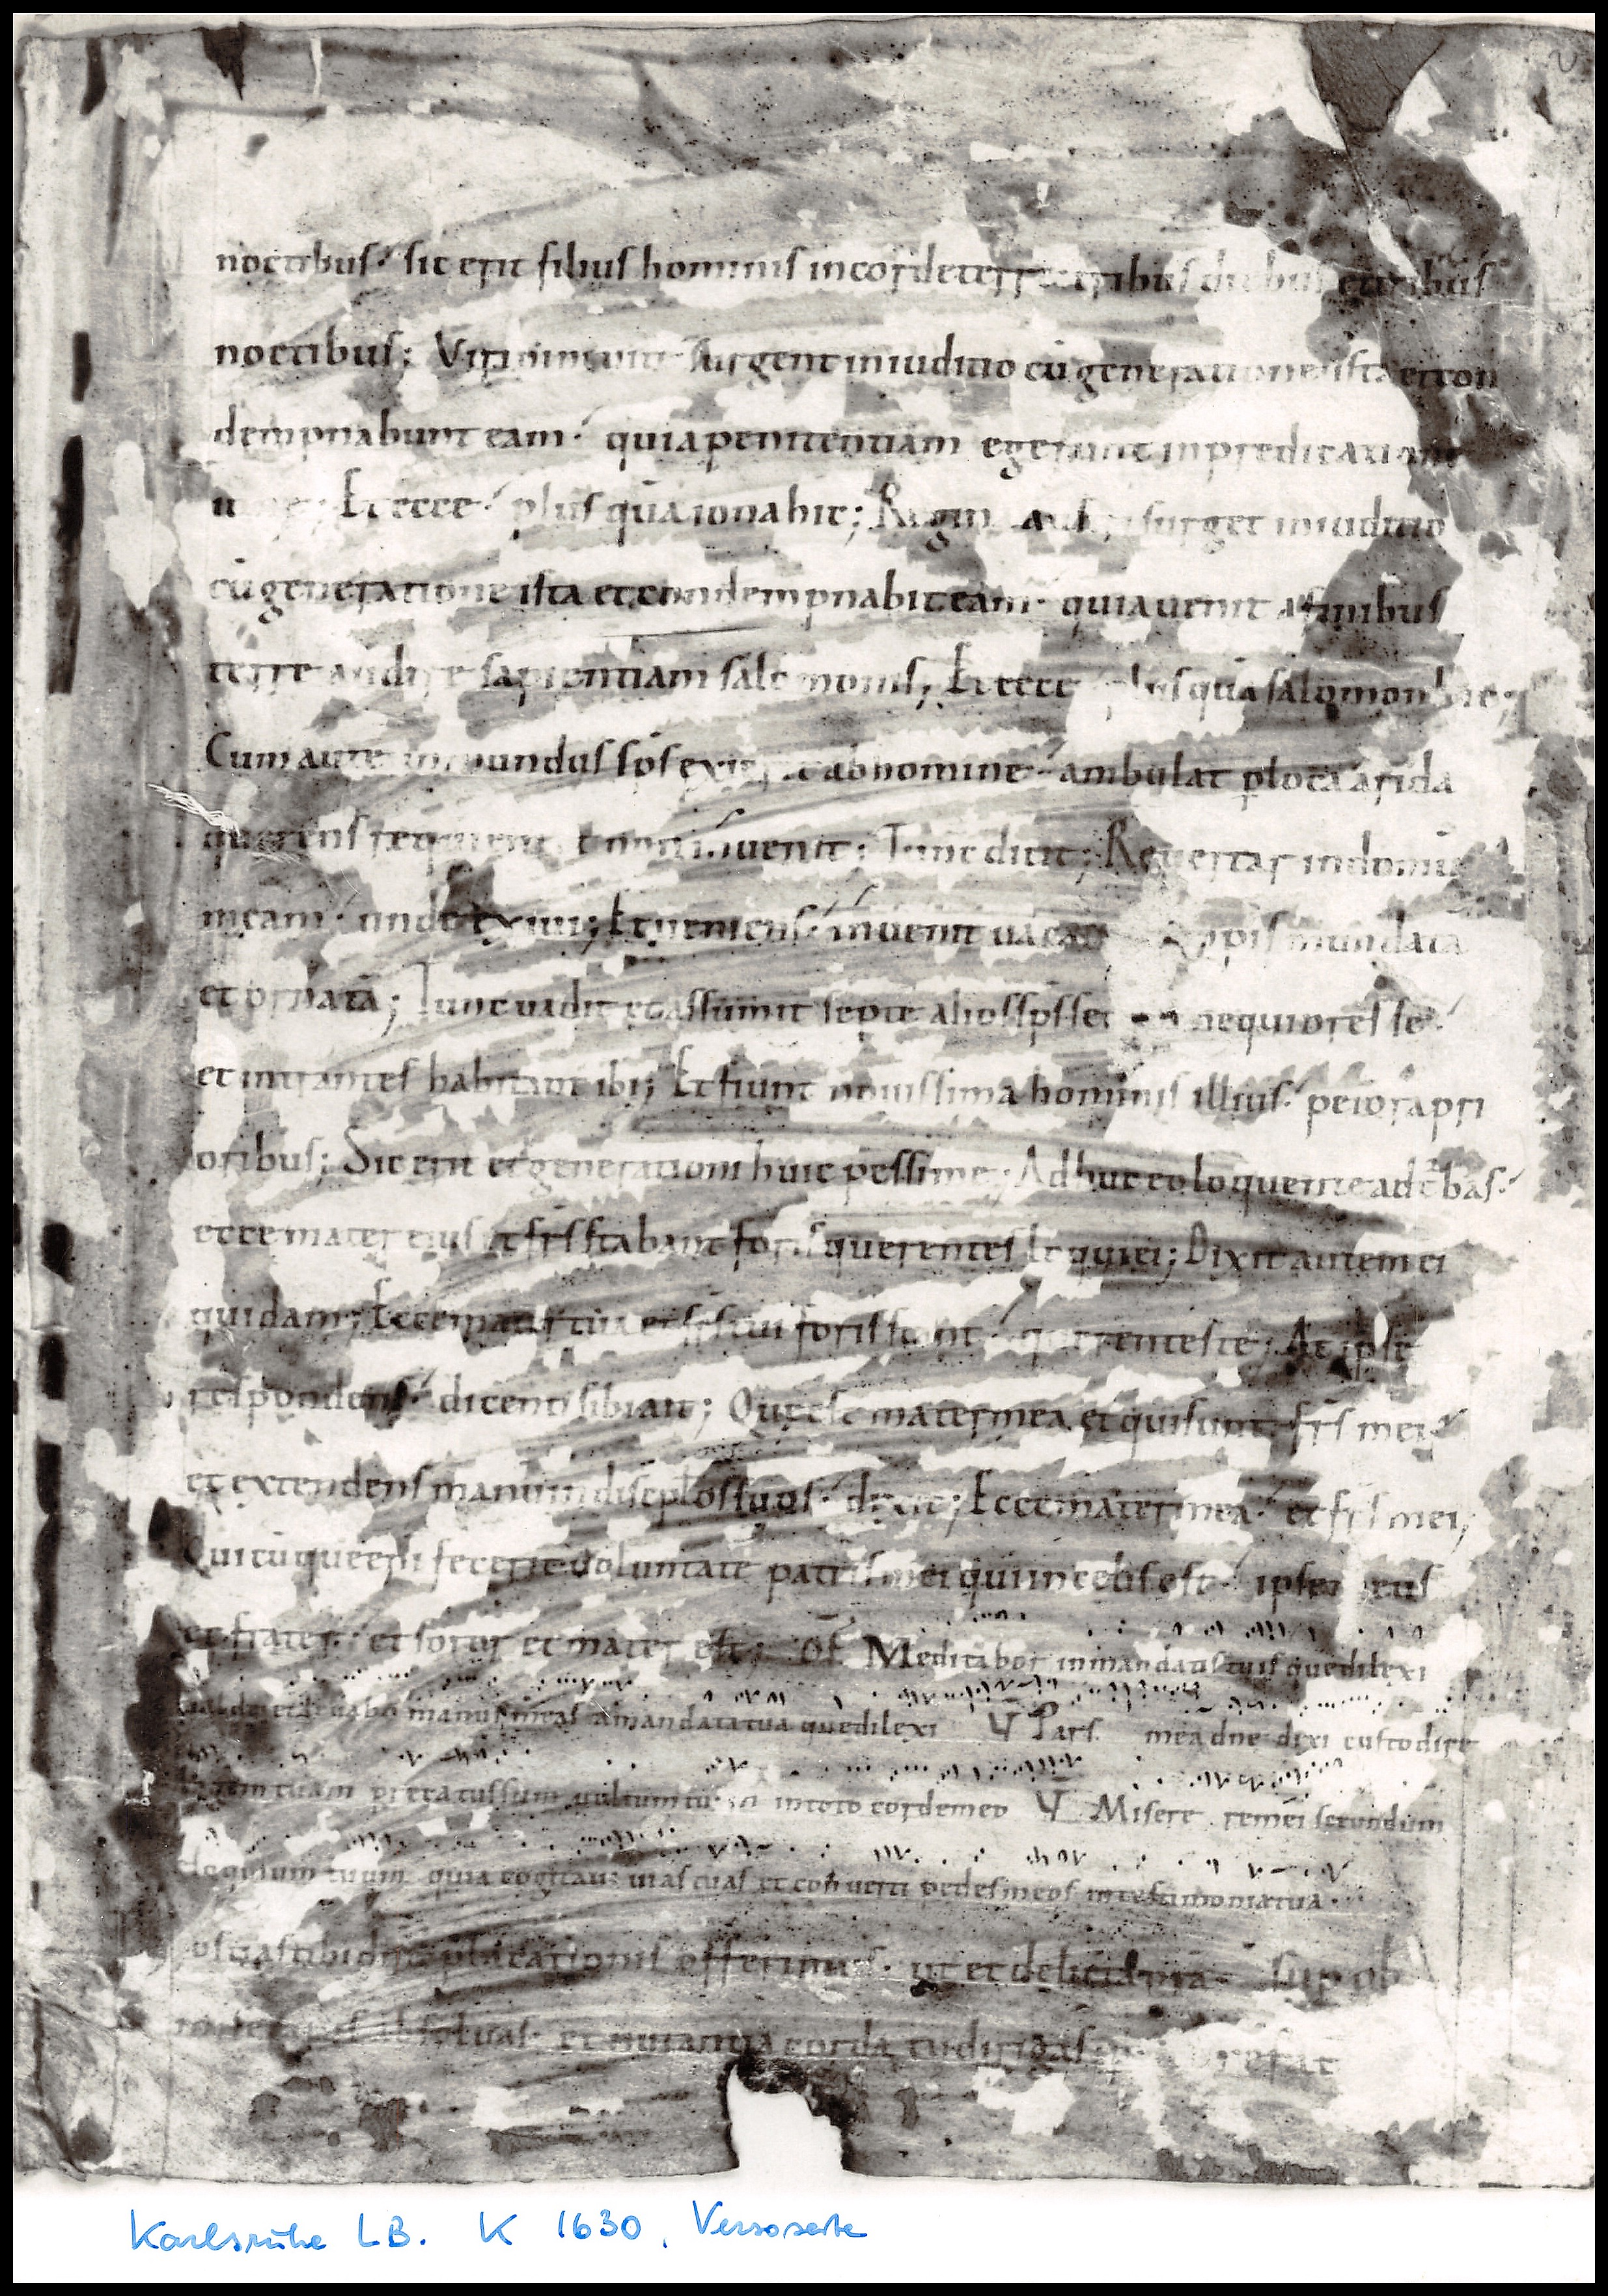 noctibus. sic erit filius hominis in corde terre tribus diebus et tribus
noctibus; Viri surgent in iuditio cu generatione ista et con
dempnabunt eam. quia penitentiam egerunt in predicatione
ione; Et ecce plus qua iona hic; Regina surget in iuditio
cu generatione ista et condempnabit eam. quia uenit a finibus
terre audire sapientiam salomonis; Et ecce plus qua salomon hic;
Cum aute inmundus sps exierit ab homine. ambulat p loca arida
querens requiem et non inuenit; Tunc dicit; Reuertar in domu
meam. unde exiui; Et ueniens. inuenit uacante scopis mundata
et ornata; Tunc uadit et assumit septe alios sps sec nequiores se.
et intrantes habitant ibi; Et fiunt nouissima hominis illius. peiora pri
oribus; Sic erit et generationi huic pessime; Adhuc eo loquente ad tbas.
ecce mater eius et frs stabant foris querentes loqui ei; Dixit autem ei
quidam; Ecce mater tua et frs tui foris stant. querentes te; At ipse
respondens. dicenti sibi ait; Que est mater mea et qui sunt frs mei.
et extendens manum in discipulos suos. dixit; Ecce mater mea. et frs mei;
Quicuque eni fecerit uoluntate patris mei qui in celis est. ipse meus
et frater. et soror et mater est; Of. Meditabor in mandatis tuis que dilexi
ualde et leuabo manus meas a mandata tua que dilexi V Pars mea dne dixi custodire
legem tuam precatus sum uultum tuum in toto corde meo V Miserere mei secundum
eloquium tuum quia cogitaui uias tuas et conuerti pedes meos in testimonia tua.
ostias tibi dne placationis offerimus. ut et delicta nra
absoluas. et nutantia corda tu dirigas
Karlsruhe LB. K 1630, Versoseite